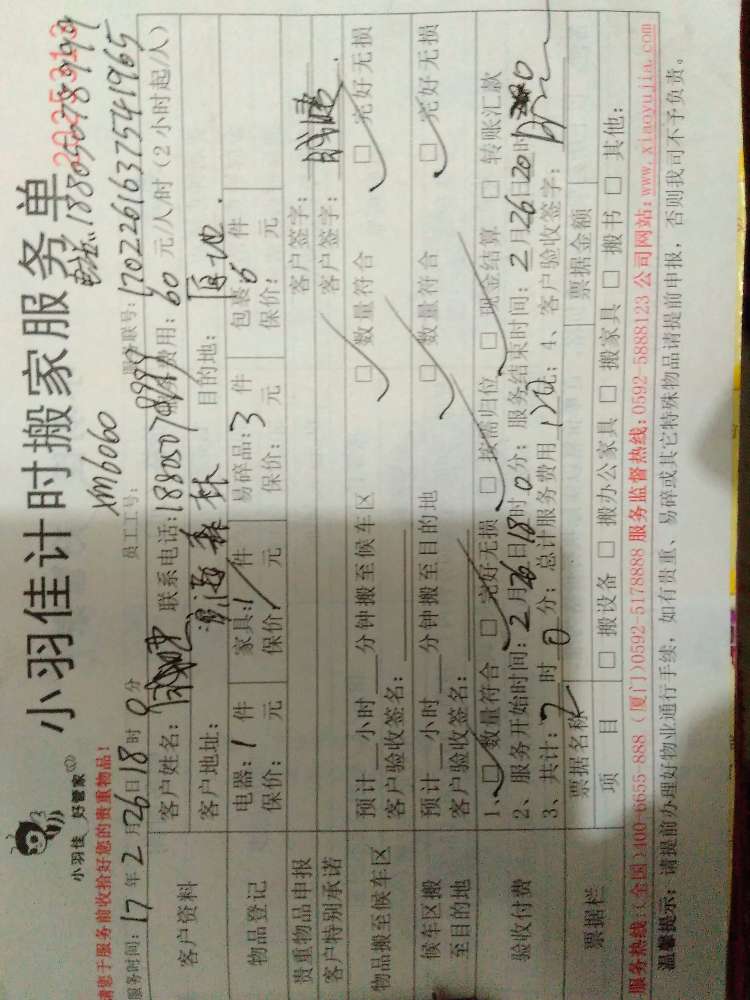 小羽佳 好管家
小羽佳计时搬家服务单
2025313
请您于服务前收拾好您的贵重物品!
xm6060
电话: 18805078999
服务时间: 17年2月26日18时0分 员工工号: 服务联号: 170226163754 1965
客户资料
客户姓名: 联系电话: 18805078999 服务费用: 60元/人/时 (2小时起/人)
客户地址: 目的地:
物品登记
电器: 1件 家具: 1件 易碎品: 3件 包裹: 6件
保价: 元 保价: 元 保价: 元 保价: 元
贵重物品申报 客户签字:
客户特别承诺 客户签字:
物品搬至候车区
预计 小时 分钟搬至候车区 □ 数量符合 □ 完好无损
客户验收签名:
候车区搬至目的地
预计 小时 分钟搬至目的地 □ 数量符合 □ 完好无损
客户验收签名:
验收付费
1、□ 数量符合 □ 完好无损 □ 按需归位 □ 现金结算 □ 转账汇款
2、服务开始时间: 2月26日18时0分; 服务结束时间: 2月26日20时
3、共计: 2时0分; 总计服务费用 元; 4、客户验收签字:
票据栏
票据名称 票据金额
项 目 □ 搬设备 □ 搬办公家具 □ 搬家具 □ 搬书 □ 其他:
服务热线: (全国)400-6655-888 (厦门)0592-5178888 服务监督热线: 0592-5888123 公司网站: www.xiaoyujia.com
温馨提示: 请提前办理好物业通行手续, 如有贵重、易碎或其它特殊物品请提前申报, 否则我司不予负责。